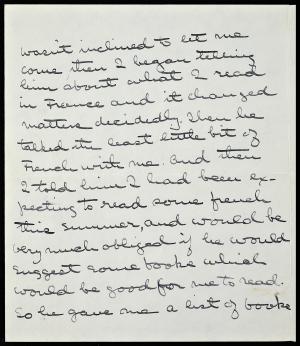 wasn't inclined to let me
come then I began telling
him about what I read
in France and it changed
matters decidedly. Then he
talked the least little bit of
French with me. And then
I told him I had been ex-
pecting to read some french
this summer, and would be
very much obliged if he would
suggest some books which
would be good for me to read.
So he gave me a list of books